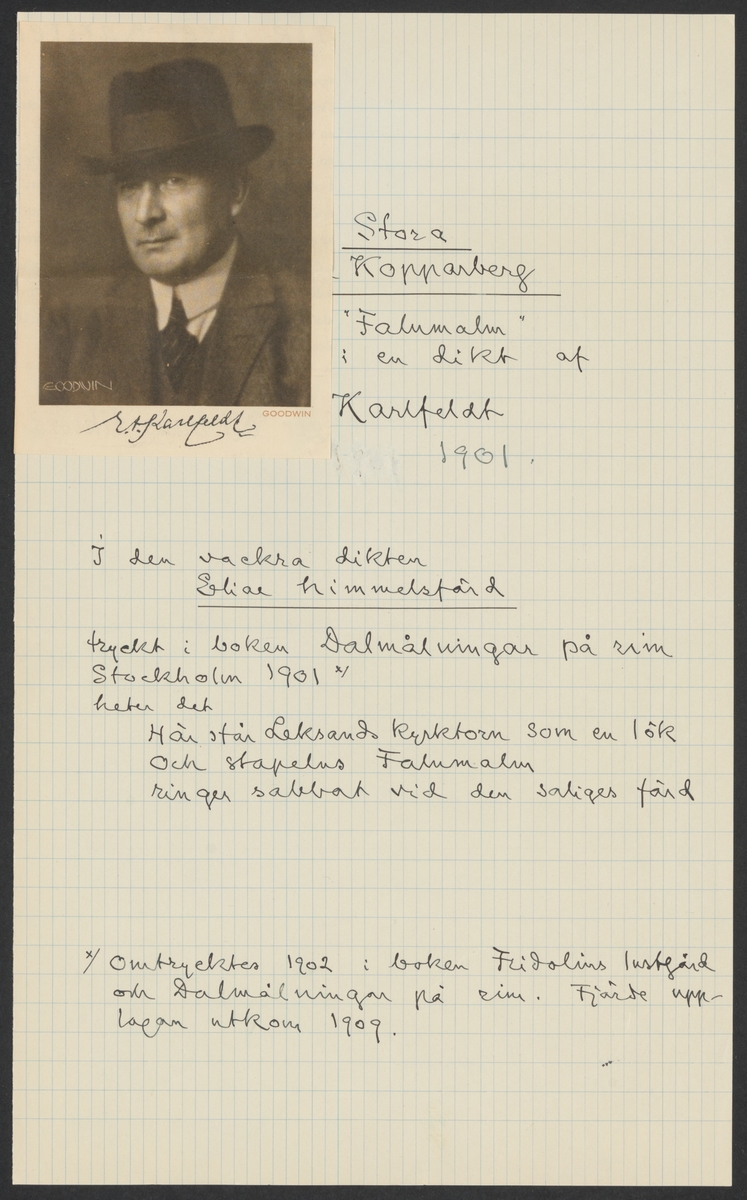 GOODWIN
GOODWIN
E.A. Karlfeldt
Stora
Kopparberg
"Falumalm"
i en dikt af
Karlfeldt
1901.
I den vackra dikten
Eliae himmelsfärd
tryckt i boken Dalmålningar på rim
Stockholm 1901 x/
heter det
Här står Leksands kyrktorn som en lök
och stapelns Falumalm
ringer sabbat vid den saliges färd
x/ Omtrycktes 1902 i boken Fridolins lustgård
och Dalmålningar på rim. Fjärde upp-
lagan utkom 1909.